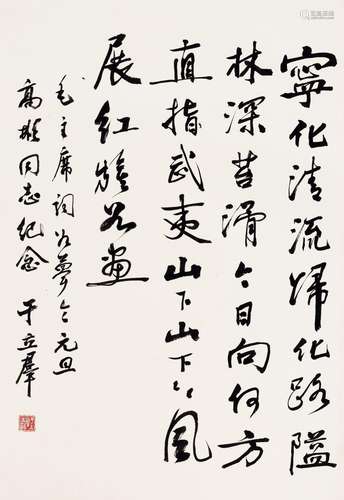 寧化清流歸化路隘
林深苔滑今日向何方
直指武夷山下山下々々風
展紅旗如畫
毛主席詞如夢令元旦
高同志紀念 于立羣